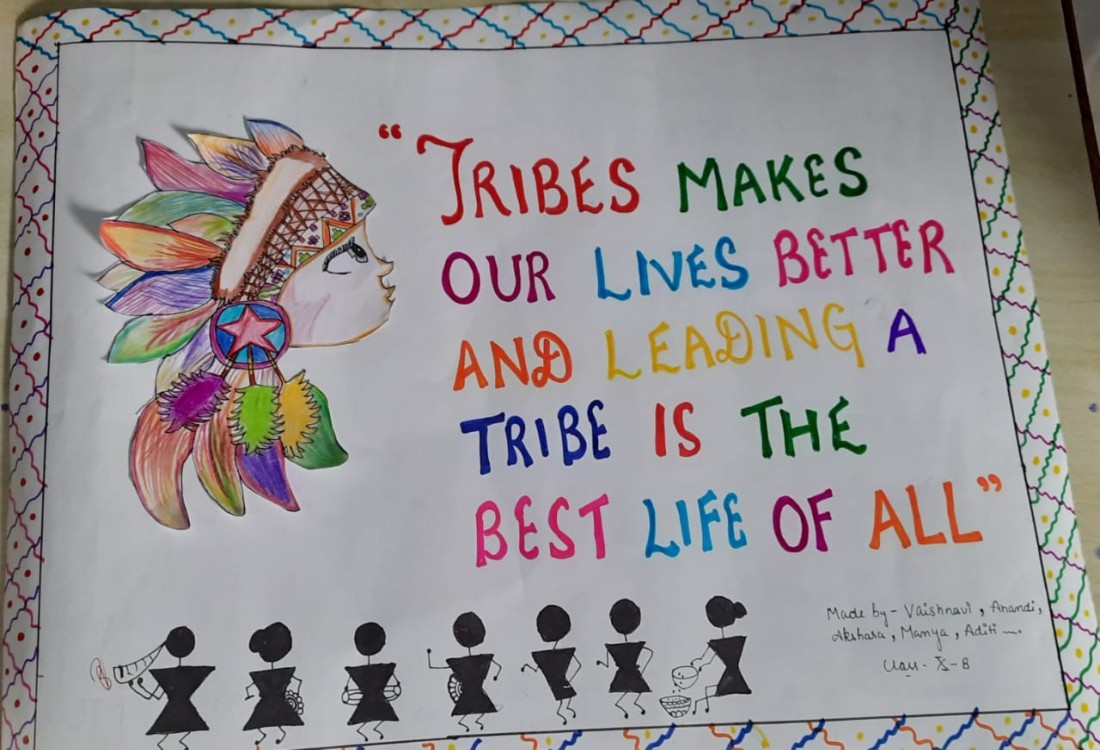 “TRIBES MAKES
OUR LIVES BETTER
AND LEADING A
TRIBE IS THE
BEST LIFE OF ALL”
Made by - Vaishnavi, Anandi,
Akshara, Manya, Aditi
X - B